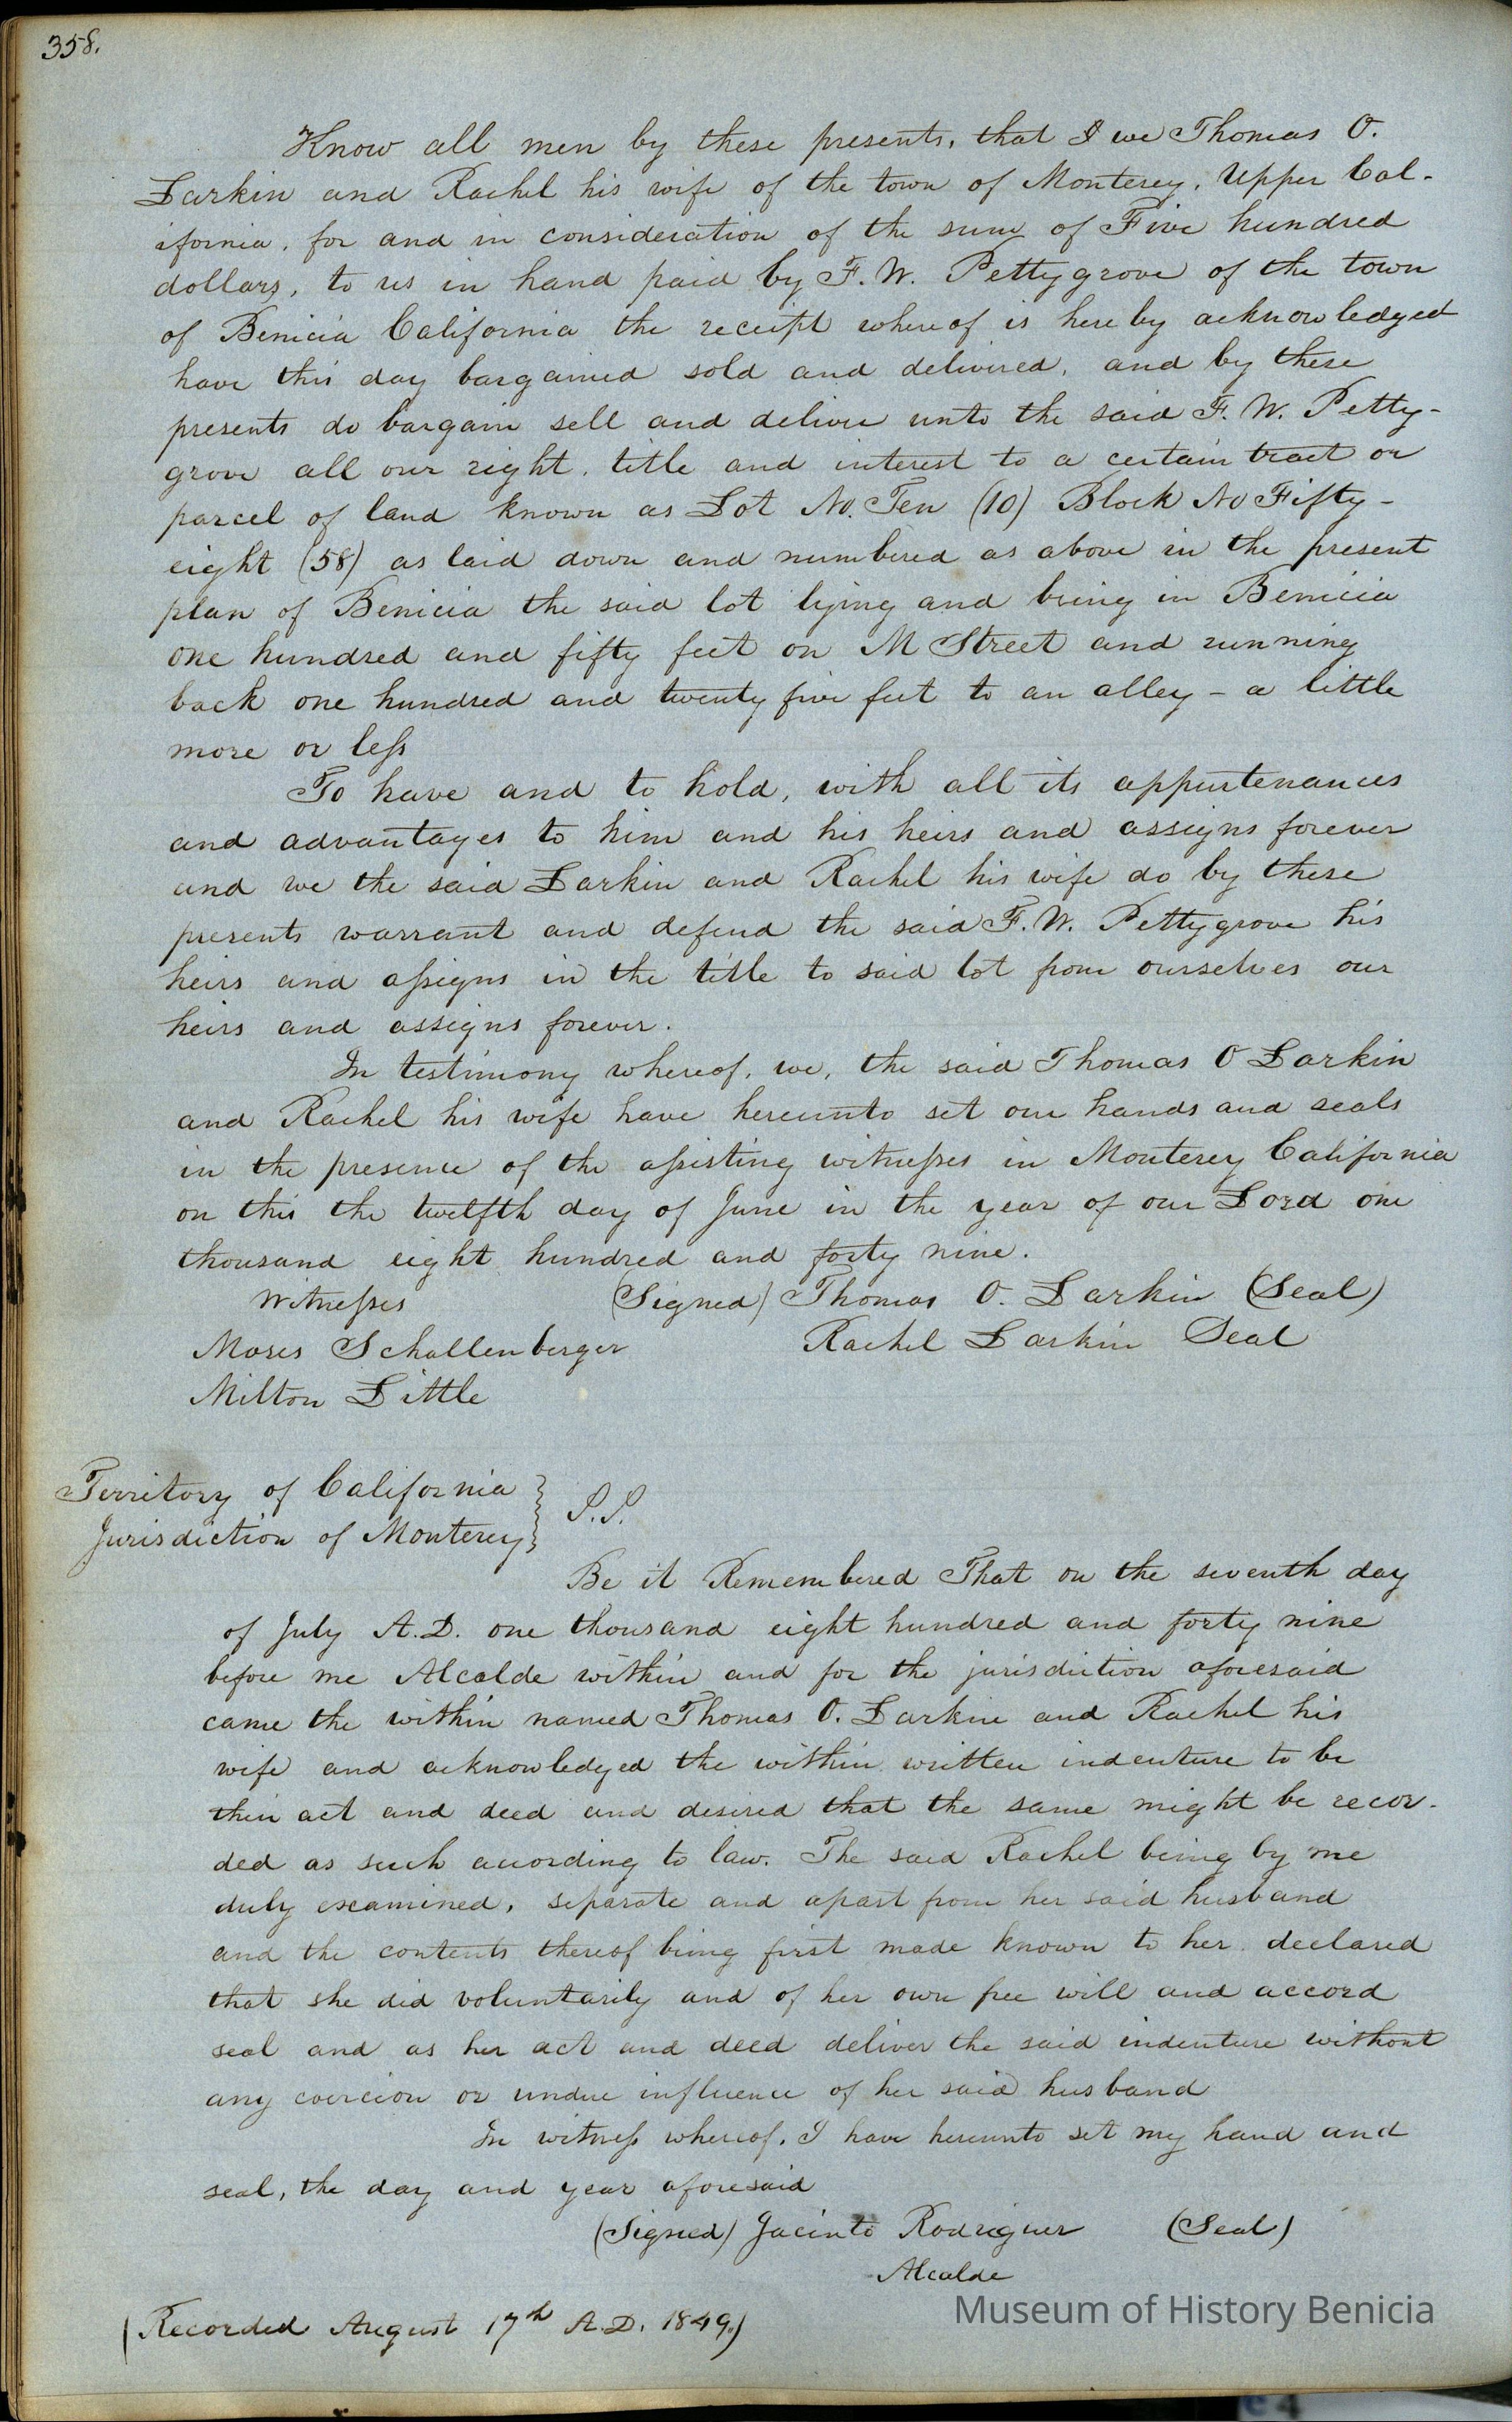 358.
Know all men by these presents, that I we Thomas O.
Larkin and Rachel his wife of the town of Monterey, Upper Cal-
ifornia, for and in consideration of the sum of Five hundred
dollars, to us in hand paid by F. W. Pettygrove of the town
of Benicia California the receipt whereof is hereby acknowledged
have this day bargained sold and delivered, and by these
presents do bargain sell and deliver unto the said F. W. Petty-
grove all our right, title and interest to a certain tract or
parcel of land known as Lot No. Ten (10) Block No Fifty-
eight (58) as laid down and numbered as above in the present
plan of Benicia the said lot lying and being in Benicia
one hundred and fifty feet on M Street and running
back one hundred and twenty five feet to an alley - a little
more or less
To have and to hold, with all its appurtenances
and advantages to him and his heirs and assigns forever
and we the said Larkin and Rachel his wife do by these
presents warrant and defend the said F. W. Pettygrove his
heirs and assigns in the title to said lot from ourselves our
heirs and assigns forever.
In testimony whereof, we, the said Thomas O Larkin
and Rachel his wife have hereunto set our hands and seals
in the presence of the assisting witnesses in Monterey California
on this the twelfth day of June in the year of our Lord one
thousand eight hundred and forty nine.
Witnesses (Signed) Thomas O. Larkin (Seal)
Moses Schallenberger Rachel Larkin Seal
Milton Little
Territory of California } S.S.
Jurisdiction of Monterey }
Be it Remembered That on the seventh day
of July A.D. one thousand eight hundred and forty nine
before me Alcalde within and for the jurisdiction aforesaid
came the within named Thomas O. Larkin and Rachel his
wife and acknowledged the within written indenture to be
their act and deed and desired that the same might be recor-
ded as such according to law. The said Rachel being by me
duly examined, separate and apart from her said husband
and the contents thereof being first made known to her declared
that she did voluntarily and of her own free will and accord
seal and as her act and deed deliver the said indenture without
any coercion or undue influence of her said husband
In witness whereof, I have hereunto set my hand and
seal, the day and year aforesaid
(Signed) Jacinto Rodriguer (Seal)
Alcalde
(Recorded August 17th A.D. 1849.)
Museum of History Benicia